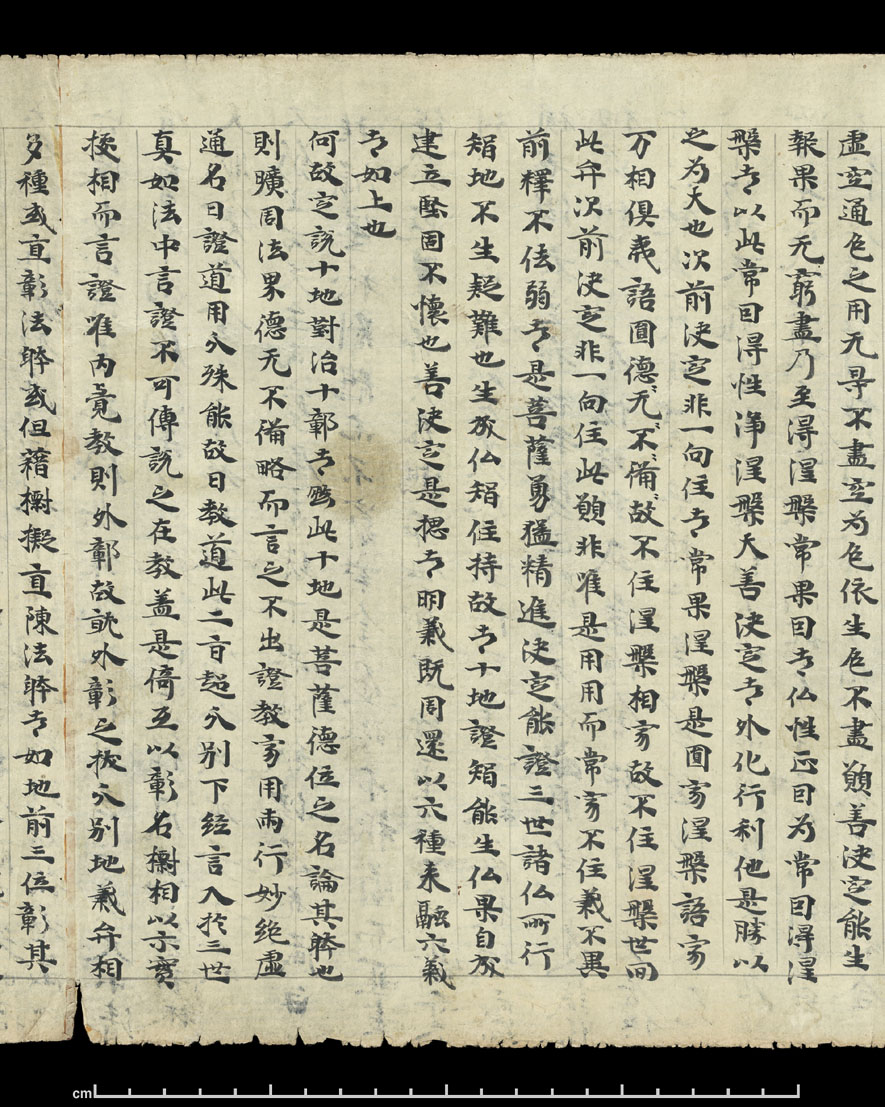 虛空通色之用无㝵不盡空為色依生色不盡願善決定能生
報果而无窮盡乃至得涅槃常果因者仏性正因为常因得涅
槃者以此常因得性淨涅槃大善決定者外化行利他是勝以
之为大也次前決定非一向住者常果涅槃是圓寂涅槃語寂
万相俱夷語圓德无不備故不住涅槃相寂故不住涅槃世间
此弁次前決定非一向住此願非唯是用用而常寂不住義不異
前釋不怯弱者是菩薩勇猛精進決定能證三世諸仏所行
智地不生疑難也生於仏智住持故者十地證智能生仏果自於
建立堅固不懷也善決定是揔者明義既周還以六種来融六義
者如上也
何故定說十地對治十鄣者然此十地是菩薩德位之名論其躰也
則曠周法界德无不備略而言之不出證教寂用兩行妙絕虛
通名曰證道用分殊能故曰教道此二盲起分别下経言入於三世
真如法中言證不可傳說之在教盖是倚互以彰名櫥相以示實
挍相而言證唯内覔教則外鄣故就外彰之挍分别地義弁相
多種或直彰法躰或但藉櫥擬直陳法躰者如地前三位彰其